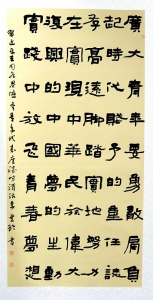 廣大青年要勇敢肩負
起時代賦予的重任志
存高遠脚踏實地努力
在實現中華民族偉大
復興的中國夢的生動
實踐中放飛青春夢想